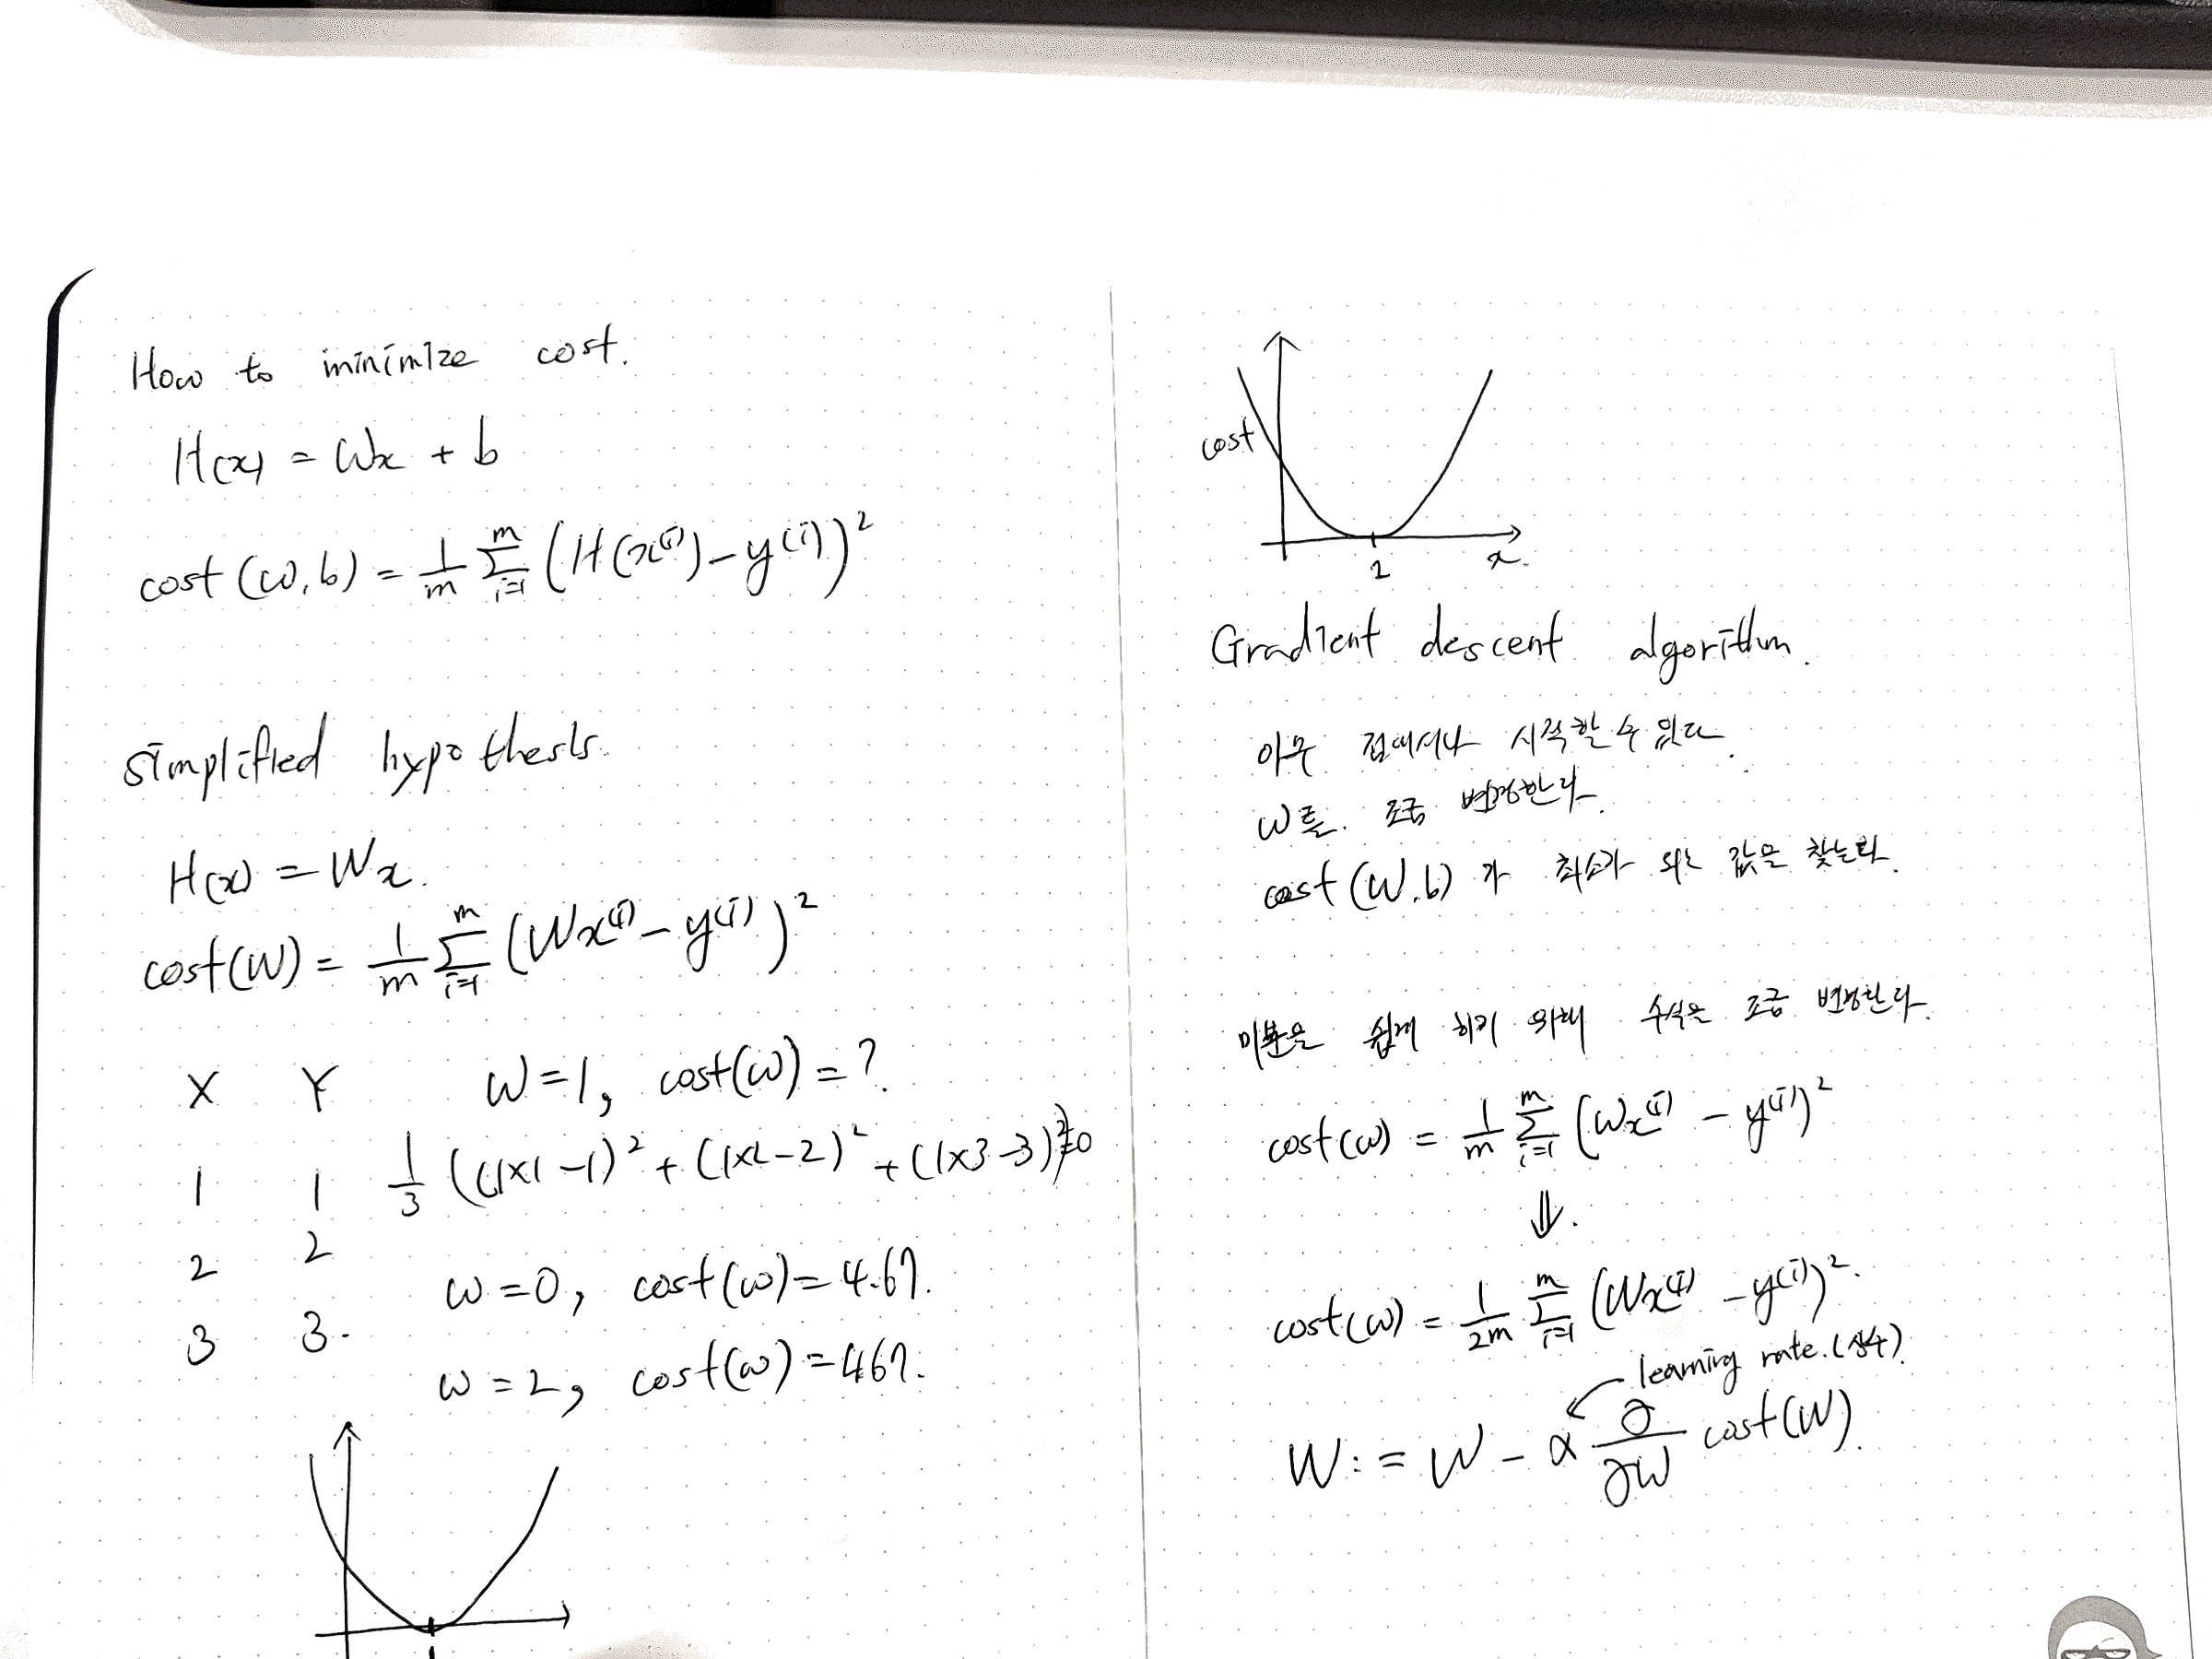 How to minimize cost.
H(x) = Wx + b
cost (w,b) = 1/m Σ_{i=1}^{m} (H(x^(i)) - y^(i))^2
simplified hypothesis.
H(x) = Wx.
cost(W) = 1/m Σ_{i=1}^{m} (Wx^(i) - y^(i))^2
X Y W=1, cost(w)=?
1 1 1/3 ((1x1-1)^2 + (1x2-2)^2 + (1x3-3)^2)=0
2 2
w=0, cost(w)=4.67.
3 3.
w=2, cost(w)=467.
1
cost
1 x.
Gradient descent algorithm.
아무 점에서나 시작할 수 있다.
W를. 조금 변경한다.
cost (W,b) 가 최소가 되는 값을 찾는다.
미분을 쉽게 하기 위해 수식을 조금 변경한다.
cost(w) = 1/m Σ_{i=1}^{m} (Wx^(i) - y^(i))^2
⇓.
cost(w) = 1/2m Σ_{i=1}^{m} (Wx^(i) - y^(i))^2.
learning rate.(상수).
W := W - α ∂/∂W cost(W).